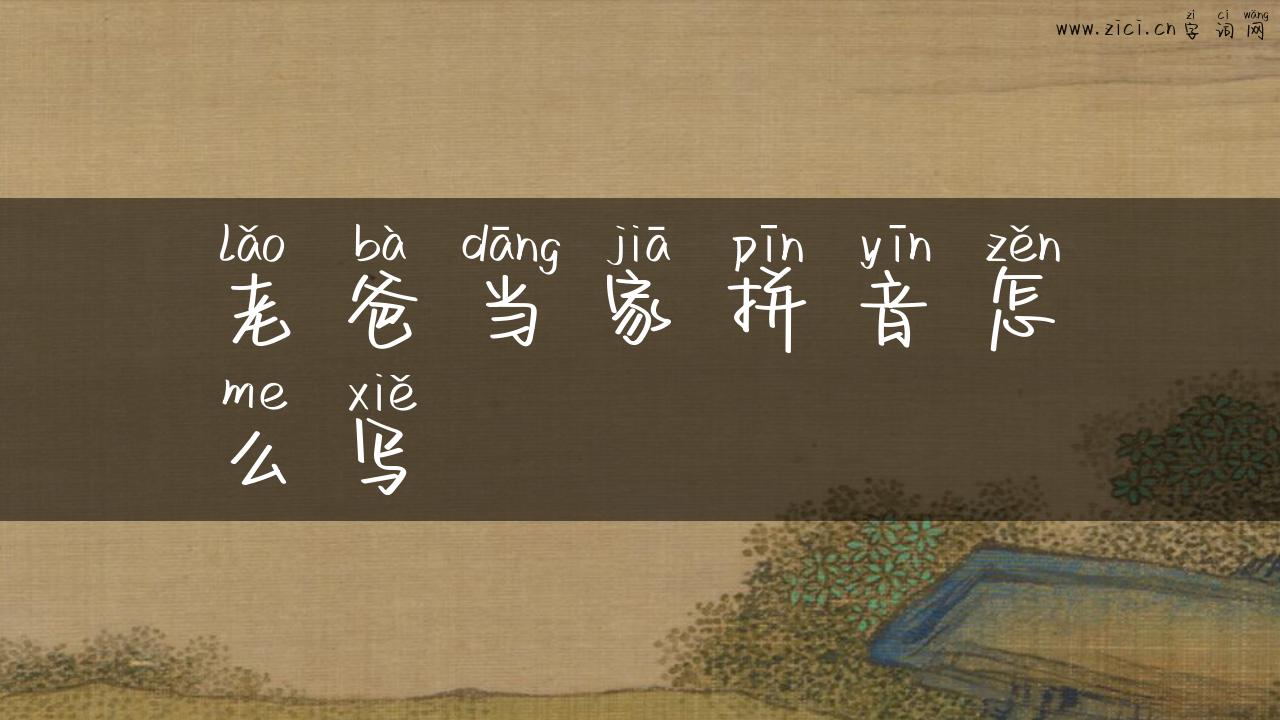 zì cí wǎng
www.zici.cn 字 词 网
lǎo bà dāng jiā pīn yīn zěn
老 爸 当 家 拼 音 怎
me xiě
么 写